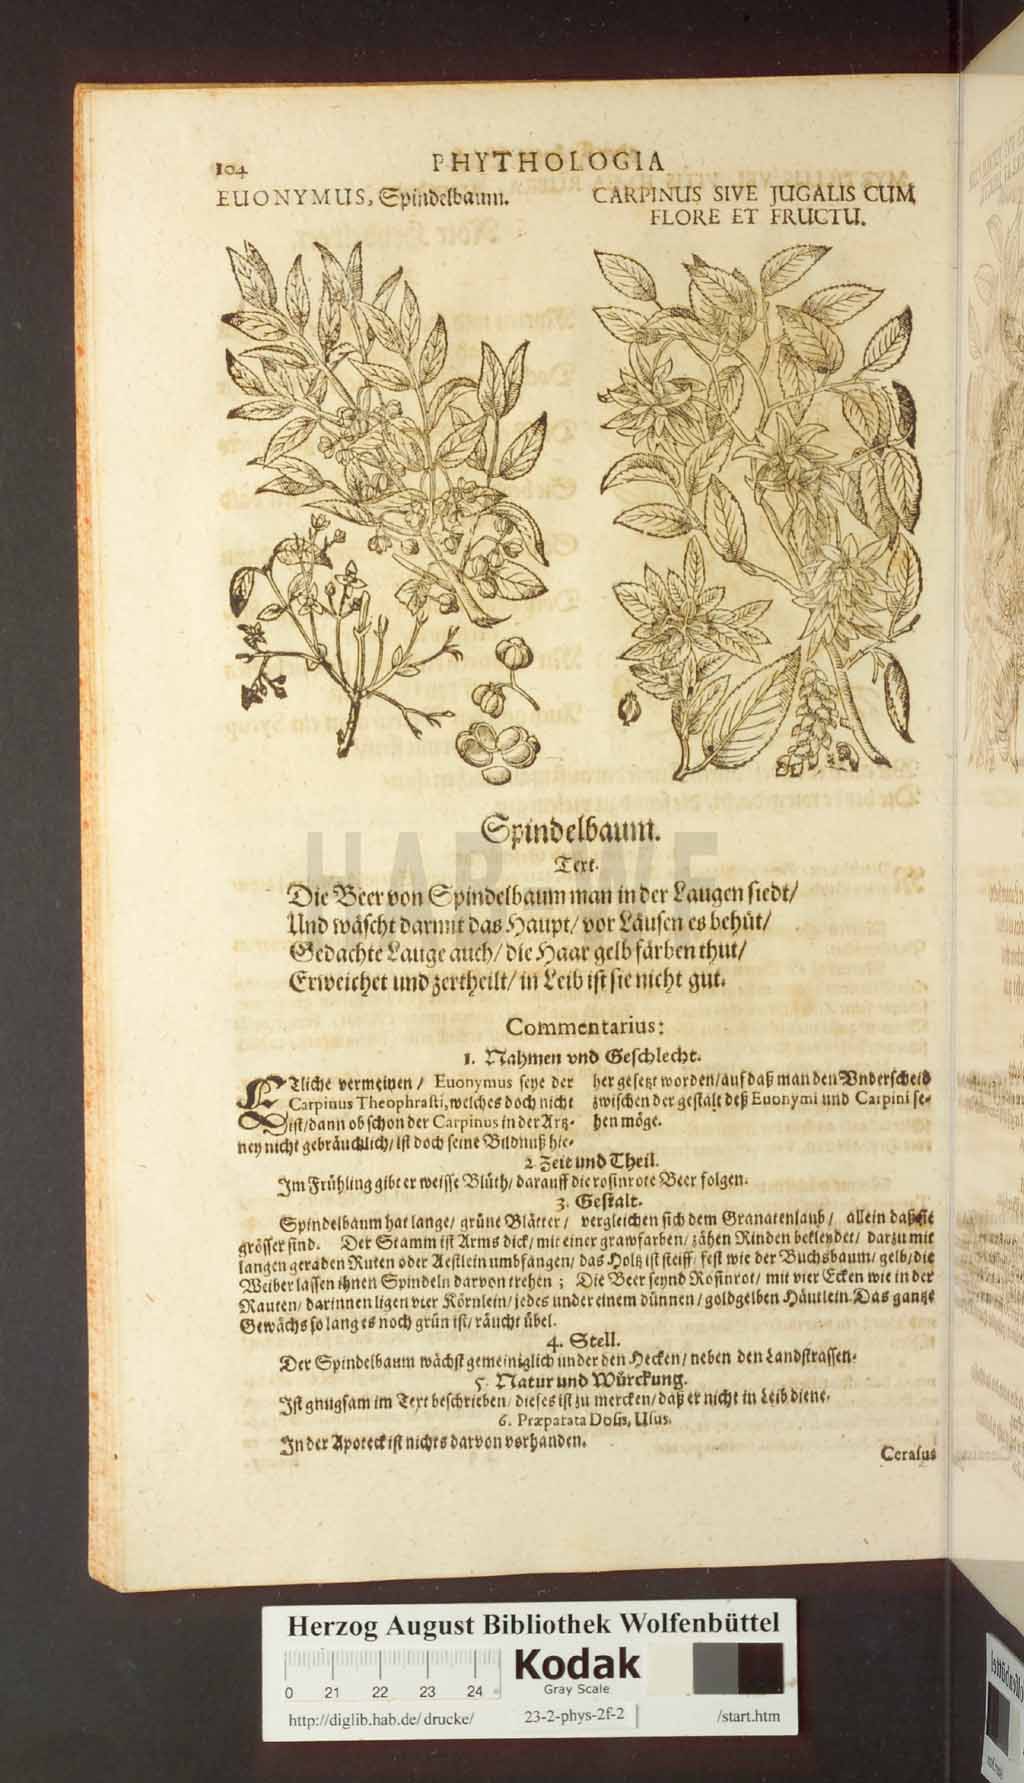 104
PHYTHOLOGIA
EUONYMUS, Spindelbaum.
CARPINUS SIVE JUGALIS CUM
FLORE ET FRUCTU.
Spindelbaum.
Text.
Die Beer von Spindelbaum man in der Laugen siedt/
Und wäscht darmit das Haupt/ vor Läusen es behüt/
Gedachte Lauge auch/ die Haar gelb färben thut/
Erweichet und zertheilt/ in Leib ist sie nicht gut.
Commentarius:
1. Nahmen vnd Geschlecht.
ETliche vermeinen / Euonymus seye der
Carpinus Theophrasti, welches doch nicht
ist/dann ob schon der Carpinus in der Artz-
ney nicht gebräuchlich/ ist doch seine Bildnuß hie-
her gesetzt worden/auf daß man den Vnderscheid
zwischen der gestalt deß Euonymi und Carpini se-
hen möge.
2 Zeit und Theil.
Im Frühling gibt er weisse Blüth/ darauff die rosinrote Beer folgen.
3. Gestalt.
Spindelbaum hat lange/ grüne Blätter / vergleichen sich dem Granatenlaub / allein daß sie
grösser sind. Der Stamm ist Arms dick/ mit einer grawfarben/ zähen Rinden bekleydet/ darzu mit
langen geraden Ruten oder Aestlein umbfangen/ das Holtz ist steiff/ fest wie der Buchsbaum/ gelb/ die
Weiber lassen ihnen Spindeln darvon trehen ; Die Beer seynd Rosinrot/ mit vier Ecken wie in der
Rauten/ darinnen ligen vier Körnlein/ jedes under einem dünnen/ goldgelben Häutlein. Das gantze
Gewächs so lang es noch grün ist/ räucht übel.
4. Stell.
Der Spindelbaum wächst gemeiniglich under den Hecken/ neben den Landstrassen.
5. Natur und Würckung.
Ist gnugsam im Text beschrieben/ dieses ist zu mercken/ daß er nicht in Leib diene.
6. Præparata Dosis, Usus.
In der Apoteck ist nichts darvon vorhanden.
Cerasus
HAB WF
Herzog August Bibliothek Wolfenbüttel
Kodak
Gray Scale
0 21 22 23 24
http://diglib.hab.de/drucke/ 23-2-phys-2f-2 /start.htm